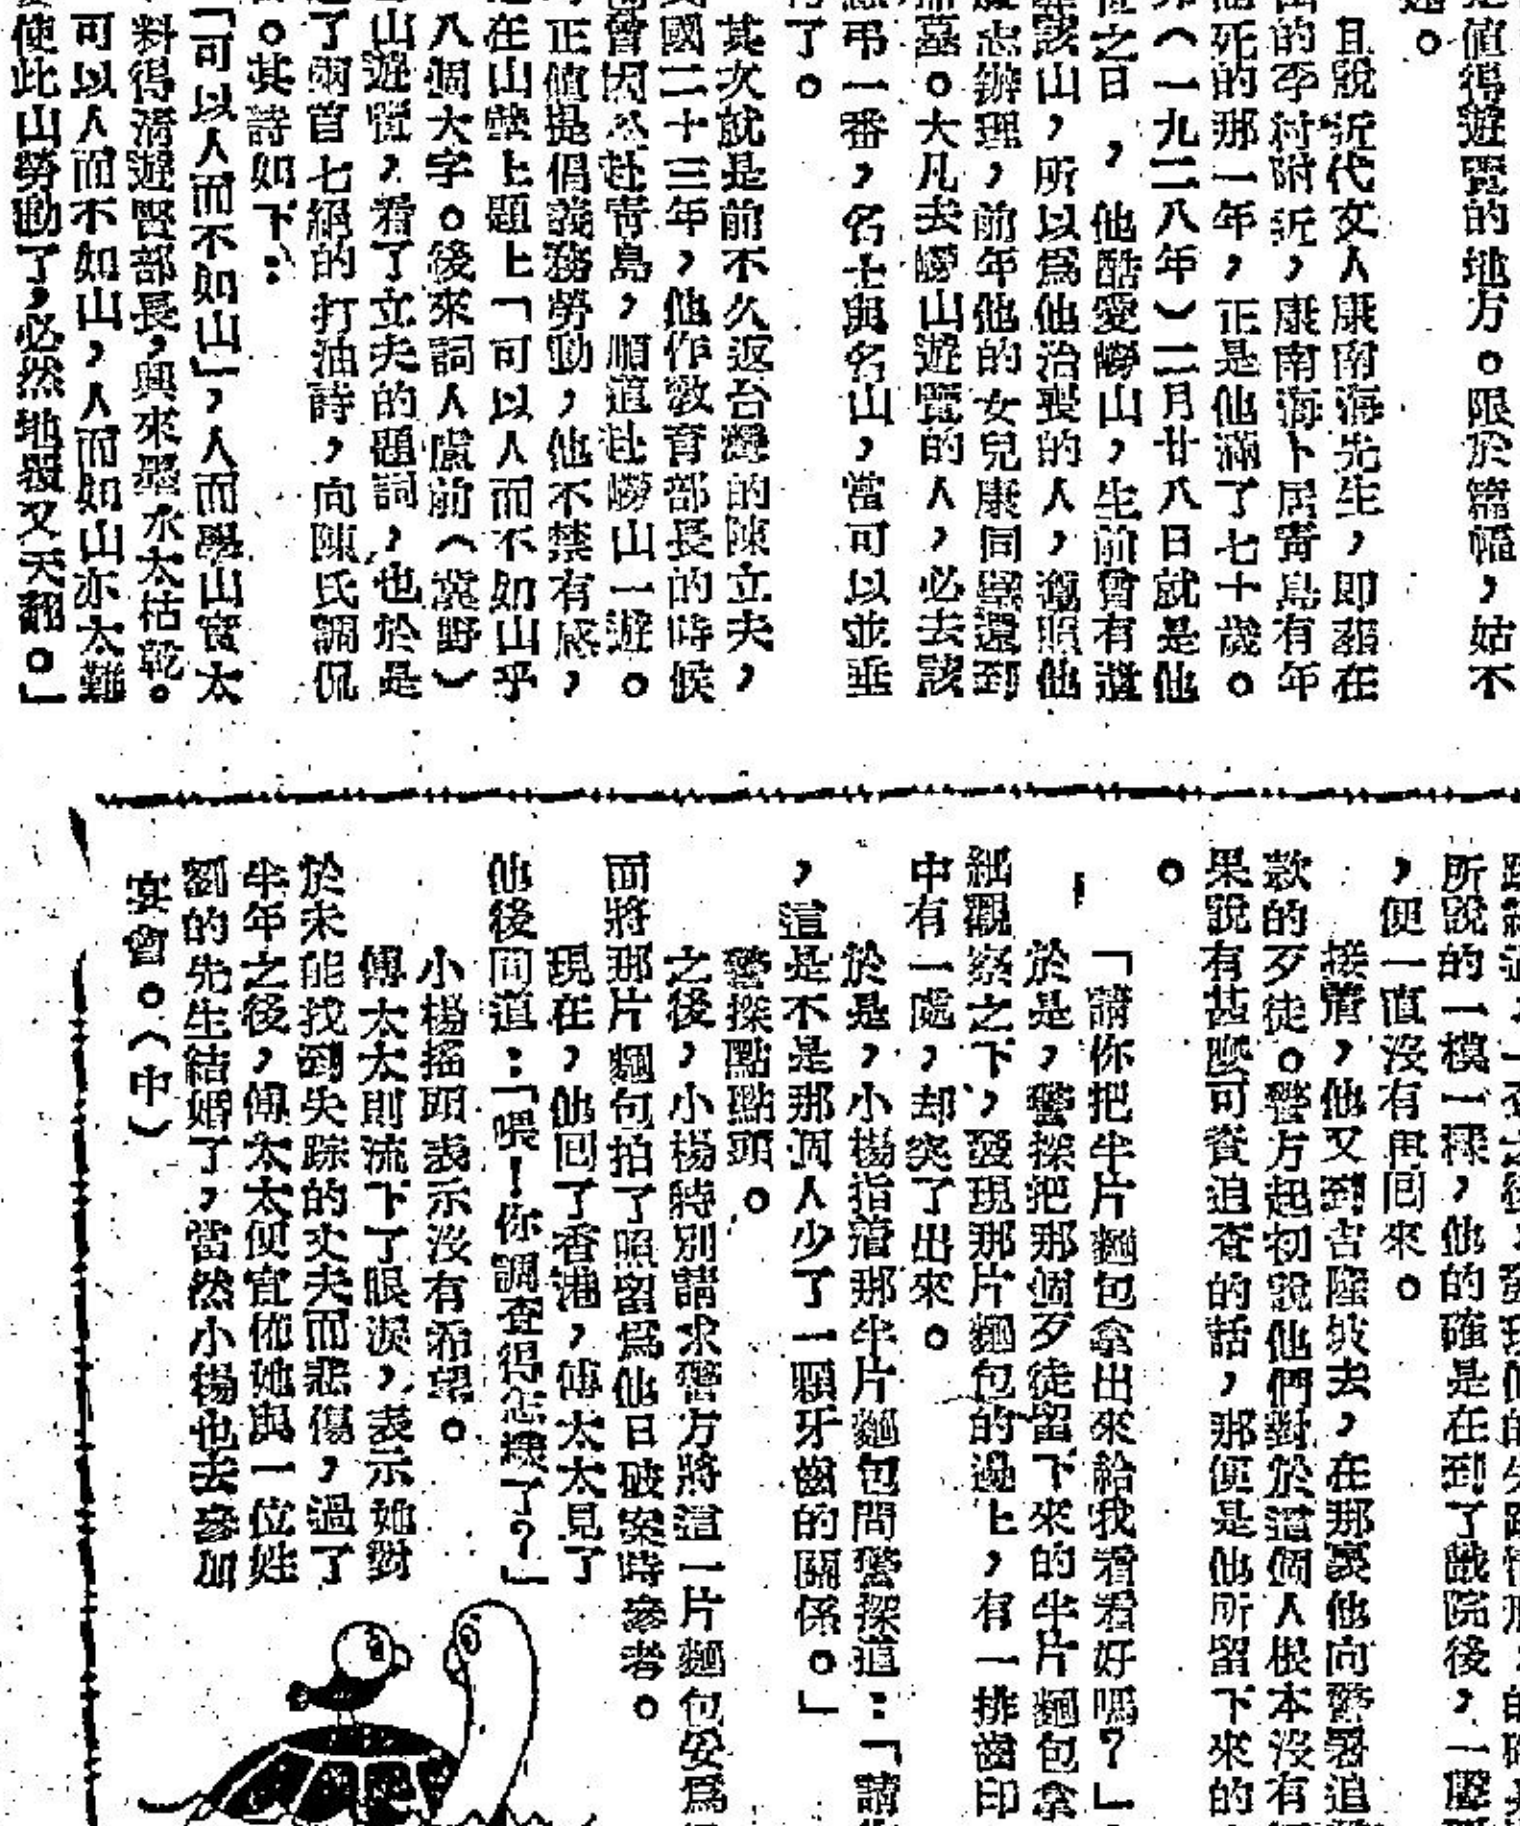 是值得遊覽的地方。限於篇幅,姑不
。
且說近代文人康南海先生,即葬在
的李村附近,康南海卜居青島有年
死的那一年,正是他滿了七十歲。
(一九二八年)二月廿八日就是他
之日,他酷愛嶗山,生前曾有遺
該山,所以爲他治喪的人,遵照他
志辦理,前年他的女兒康同璧還到
墓。大凡去嶗山遊覽的人,必去該
弔一番,名士與名山,當可以並垂
了。
其次就是前不久返台灣的陳立夫,
國二十三年,他作教育部長的時候
曾因公赴靑島,順道赴嶗山一遊。
正值提倡義務勞動,他不禁有感,
在山巒上題上「可以人而不如山乎
八個大字。後來詞人盧前(冀野)
山遊覽,看了立夫的題詞,也於是
了兩首七絕的打油詩,向陳氏調侃
。其詩如下:
「可以人而不如山」,人而學山實太
料得淸遊賢部長,興來墨水太枯乾。
可以人而不如山,人而如山亦太難
使此山勞動了,必然地覆又天翻。」
所說的一模一樣,他的確是在到了戲院後,一
,便一直沒有再回來。
接着,他又到吉隆坡去,在那裏他向警署追
款的歹徒。警方起初說他們對於這個人根本沒有
果說有甚麼可資追查的話,那便是他所留下來的
。
「請你把半片麵包拿出來給我看看好嗎?」
於是,警探把那個歹徒留下來的半片麵包拿
細觀察之下,發現那片麵包的邊上,有一排齒印
中有一處,却突了出來。
於是,小楊指着那半片麵包問警探道:「請
,這是不是那個人少了一顆牙齒的關係。」
警探點點頭。
之後,小楊特別請求警方將這一片麵包妥爲
而將那片麵包拍了照留爲他日破案時參考。
現在,他回了香港,傅太太見了
他後問道:「喂!你調查得怎樣了?」
小楊搖頭表示沒有希望。
傅太太則流下了眼淚,表示她對
於未能找到失踪的丈夫而悲傷,過了
半年之後,傅太太便宣佈她與一位姓
劉的先生結婚了,當然小楊也去參加
宴會。(中)